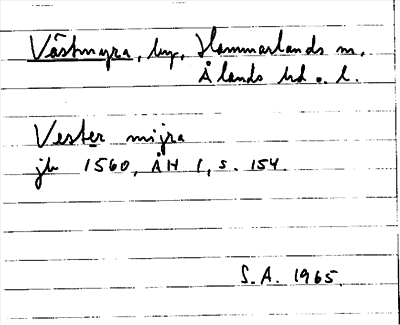 Västmyra, by, Hammarlands sn,
Ålands hd o. l.
Vester mijra
jb 1560, ÅH 1, s. 154.
S.A. 1965.